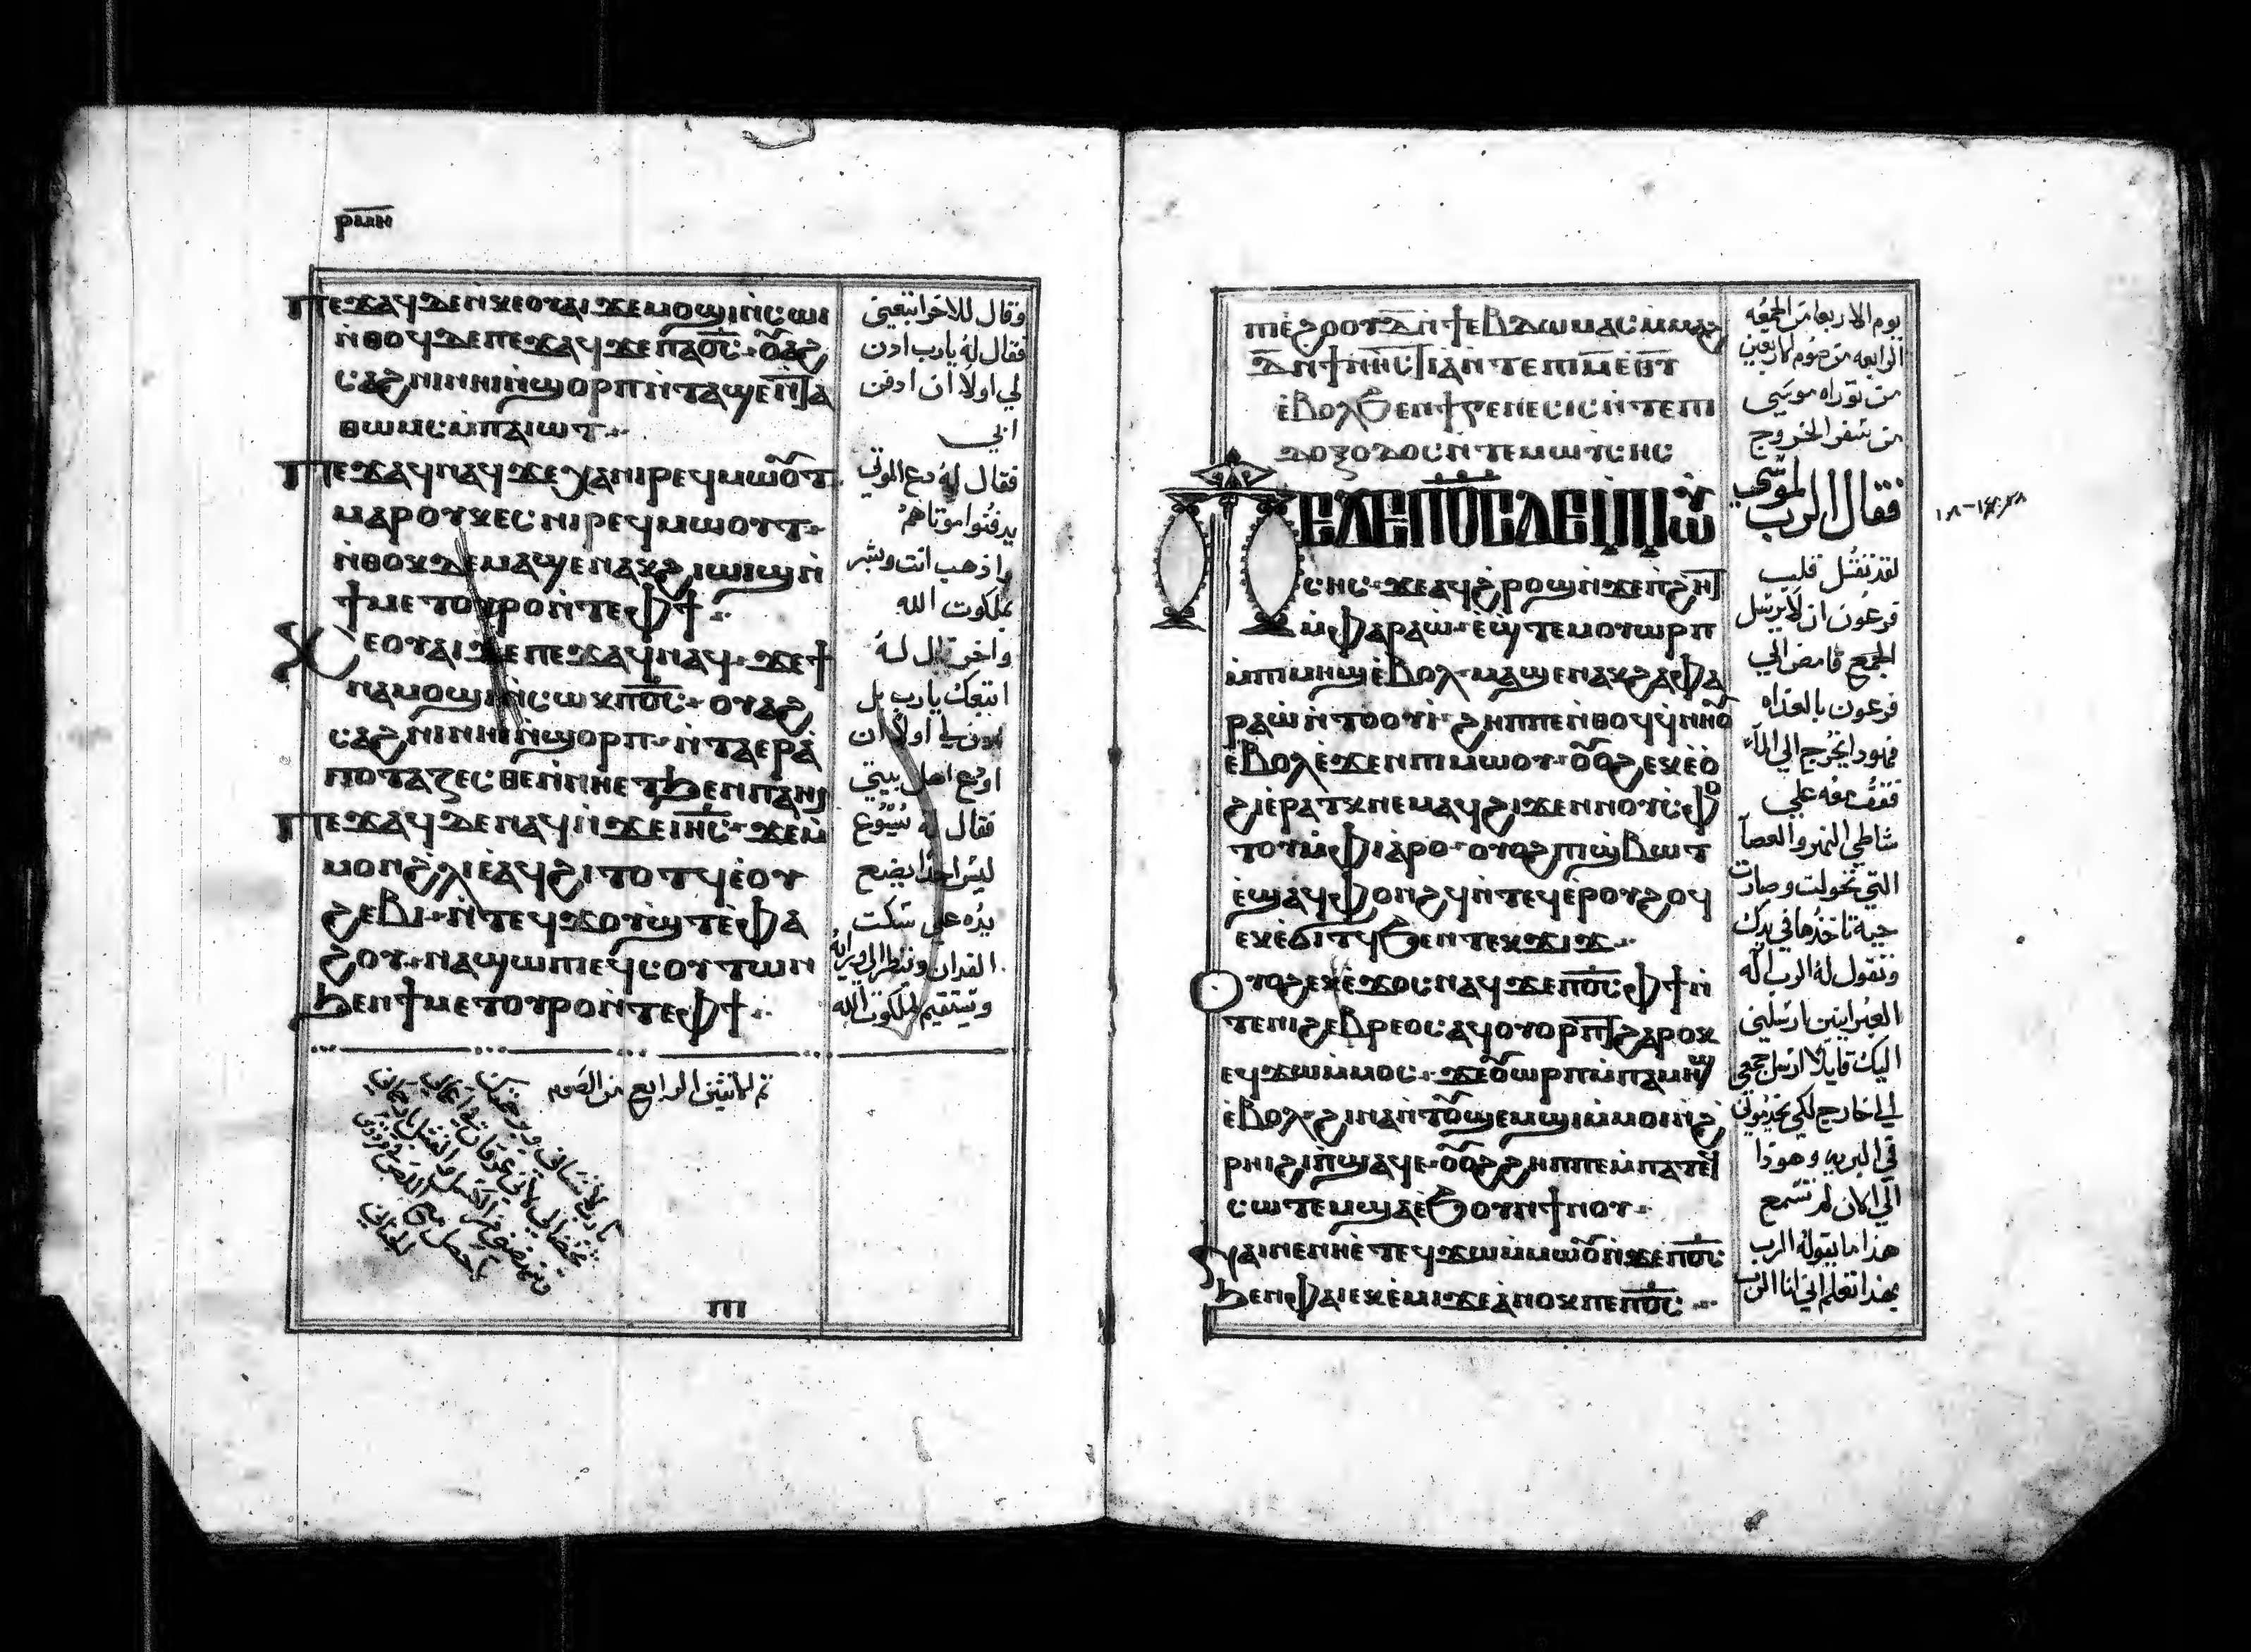 ⲣⲙⲏ
ⲡⲉϫⲁϥ ⲇⲉ ⲛ̀ⲕⲉⲟⲩⲁⲓ ϫⲉ ⲙⲟϣⲓ ⲛ̀ⲥⲱⲓ
ⲛ̀ⲑⲟϥ ⲇⲉ ⲡⲉϫⲁϥ ϫⲉ ⲡⲁⲟ̅ⲥ̅ ⲟⲩⲁϩ
ⲥⲁϩⲛⲓ ⲛⲏⲓ ⲛ̀ϣⲟⲣⲡ ⲛ̀ⲧⲁϣⲉⲛⲏⲓ ⲁ
ⲑⲱⲙⲥ ⲙ̀ⲡⲁⲓⲱⲧ
ⲡⲉϫⲁϥ ⲛⲁϥ ϫⲉ ⲭⲁ ⲛⲓⲣⲉϥⲙⲱⲟⲩⲧ
ⲙⲁⲣⲟⲩⲕⲉⲥ ⲛⲓⲣⲉϥⲙⲱⲟⲩⲧ
ⲛ̀ⲑⲟⲕ ⲇⲉ ⲙⲁϣⲉⲛⲁⲕ ϩⲓⲱⲓϣ ⲛ̀
ϯⲙⲉⲧⲟⲩⲣⲟ ⲛ̀ⲧⲉ ⲫϯ
ⲕⲉⲟⲩⲁⲓ ⲇⲉ ⲡⲉϫⲁϥ ⲛⲁϥ ϫⲉ ϯ
ⲛⲁⲙⲟϣⲓ ⲛ̀ⲥⲱⲕ ⲡⲟ̅ⲥ̅ ⲟⲩⲁϩ
ⲥⲁϩⲛⲓ ⲛⲏⲓ ⲛ̀ϣⲟⲣⲡ ⲛ̀ⲧⲁⲉⲣⲁ̀
ⲡⲟⲧⲁⲍⲉⲥⲑⲉ ⲛ̀ⲛⲏⲉⲧϧⲉⲛ ⲡⲁⲏⲓ
ⲡⲉϫⲁϥ ⲇⲉ ⲛⲁϥ ⲛ̀ϫⲉ ⲓⲏ̅ⲥ̅ ϫⲉ ⲙ̀
ⲙⲟⲛ ϩⲗⲓ ⲉ̀ⲁϥϩⲓⲧⲟⲧϥ ⲉ̀ⲟⲩ
ϩⲉⲃⲓ ⲛ̀ⲧⲉϥϫⲟⲩϣⲧ ⲉ̀ⲫⲁ
ϩⲟⲩ ⲛⲁϣⲱⲡⲓ ⲉϥⲥⲟⲩⲧⲱⲛ
ϧⲉⲛ ϯⲙⲉⲧⲟⲩⲣⲟ ⲛ̀ⲧⲉ ⲫϯ
وقال للاخر اتبعني
فقال له يارب ادن
لي اولا ان ادفن
ابي
فقال له دع الموتي
يدفنوا موتاهم
واذهب انت وبشر
بملكوت الله
واخر قال له
اتبعك يارب بل
ادن لي اولا ان
اودع اهل بيتي
فقال له يسوع
ليس احدا يضع
يده علي سكت
الفدان وينظر الي ورايه
ويستقيم لملكوت الله
تم الاثنين الرابع من الصوم
ⲡⲓ
ⲡⲓⲉ̀ϩⲟⲟⲩ ⲇ̅ ⲛ̀ϯⲉⲃⲇⲱⲙⲁⲥ ⲙ̀ⲙⲁϩ
ⲇ̅ ⲛ̀ϯⲛⲏⲥⲧⲓⲁ ⲛ̀ⲧⲉ ⲡⲓⲙ̅ ⲉ̀ϩⲟⲟⲩ
ⲉ̀ⲃⲟⲗϧⲉⲛ ϯⲅⲉⲛⲉⲥⲓⲥ ⲛ̀ⲧⲉ ⲡⲓ
ⲇⲟⲝⲟⲇⲟⲥ ⲛ̀ⲧⲉ ⲙⲱⲩⲥⲏⲥ
ⲡⲉϫⲉ ⲡⲟ̅ⲥ̅ ⲇⲉ ⲙ̀ⲙⲱⲩ
ⲥⲏⲥ ϫⲉ ⲁϥϩⲣⲟϣ ⲛ̀ϫⲉ ⲡϩⲏⲧ
ⲙ̀ⲫⲁⲣⲁⲱ̀ ⲉ̀ϣⲧⲉⲙⲟⲩⲱⲣⲡ
ⲙ̀ⲡⲓⲙⲏϣ ⲉ̀ⲃⲟⲗ ⲙⲁϣⲉⲛⲁⲕ ϩⲁ ⲫⲁ
ⲣⲁⲱ̀ ⲛ̀ⲧⲟⲟⲩⲓ̀ ϩⲏⲡⲡⲉ ⲛ̀ⲑⲟϥ ϥⲛⲏⲟⲩ
ⲉ̀ⲃⲟⲗ ⲉ̀ϫⲉⲛ ⲡⲓⲙⲱⲟⲩ ⲟⲩⲟϩ ⲉⲕⲉⲟ̀
ϩⲓ ⲉ̀ⲣⲁⲧⲕ ⲛⲉⲙⲁϥ ϩⲓϫⲉⲛ ⲛⲉⲛⲥⲫⲟ
ⲧⲟⲩ ⲙ̀ⲫⲓⲁⲣⲟ ⲟⲩⲟϩ ⲡⲓϣ̀ⲃⲱⲧ
ⲉ̀ϣⲁϥⲫⲟⲛϩϥ ⲛ̀ⲧⲉϥⲉⲣ ⲟⲩϩⲟϥ
ⲉⲕⲉ̀ϭⲓⲧϥ ϧⲉⲛ ⲧⲉⲕϫⲓϫ
ⲟⲩⲟϩ ⲉⲕⲉ̀ϫⲟⲥ ⲛⲁϥ ϫⲉ ⲡⲟ̅ⲥ̅ ⲫϯ ⲛ̀
ⲧⲉ ⲛⲓϩⲉⲃⲣⲉⲟⲥ ⲁϥⲟⲩⲟⲣⲡⲧ ϩⲁⲣⲟⲕ
ⲉϥϫⲱ ⲙ̀ⲙⲟⲥ ϫⲉ ⲟⲩⲱⲣⲡ ⲙ̀ⲡⲁⲙⲏϣ
ⲉ̀ⲃⲟⲗ ϩⲓⲛⲁ ⲛ̀ⲧⲟⲩϣⲉⲙϣⲓ ⲙ̀ⲙⲟⲓ ⲛ̀ϩ
ⲣⲏⲓ ϩⲓ ⲡ̀ϣⲁϥⲉ ⲟⲩⲟϩ ϩⲏⲡⲡⲉ ⲙ̀ⲡⲁⲧⲉⲕ
ⲥⲱⲧⲉⲙ ϣⲁ ⲉ̀ϧⲟⲩⲛ ϯⲛⲟⲩ
ⲛⲁⲓ ⲛⲉ ⲛⲏⲉ̀ⲧⲉϥϫⲱ ⲙ̀ⲙⲱⲟⲩ ⲛ̀ϫⲉ ⲡⲟ̅ⲥ̅
ϧⲉⲛ ⲫⲁⲓ ⲉⲕⲉ̀ⲉⲙⲓ ϫⲉ ⲁ̀ⲛⲟⲕ ⲡⲉ ⲡⲟ̅ⲥ̅
يوم الاربعا من الجمعه
الرابعه من صوم الاربعين
من توراه موسي
من سفر الخروج
فقال الرب لموسي
لقد تقتل قلب
فرعون ان لا يرسل
الجمع فامض الي
فرعون بالغداه
فهوذا يخرج الي الماء
فقف معه علي
شاطي النهر والعصا
التي تحولت وصارت
حية تاخذها في يدك
وتقول له الرب اله
العبرانيين ارسلني
اليك قايلا ارسل جمعي
الي خارج لكي يخدموني
في البريه وهوذا
الي الان لم تسمع
هذا ما يقوله الرب
بهذا تعلم اني انا الرب